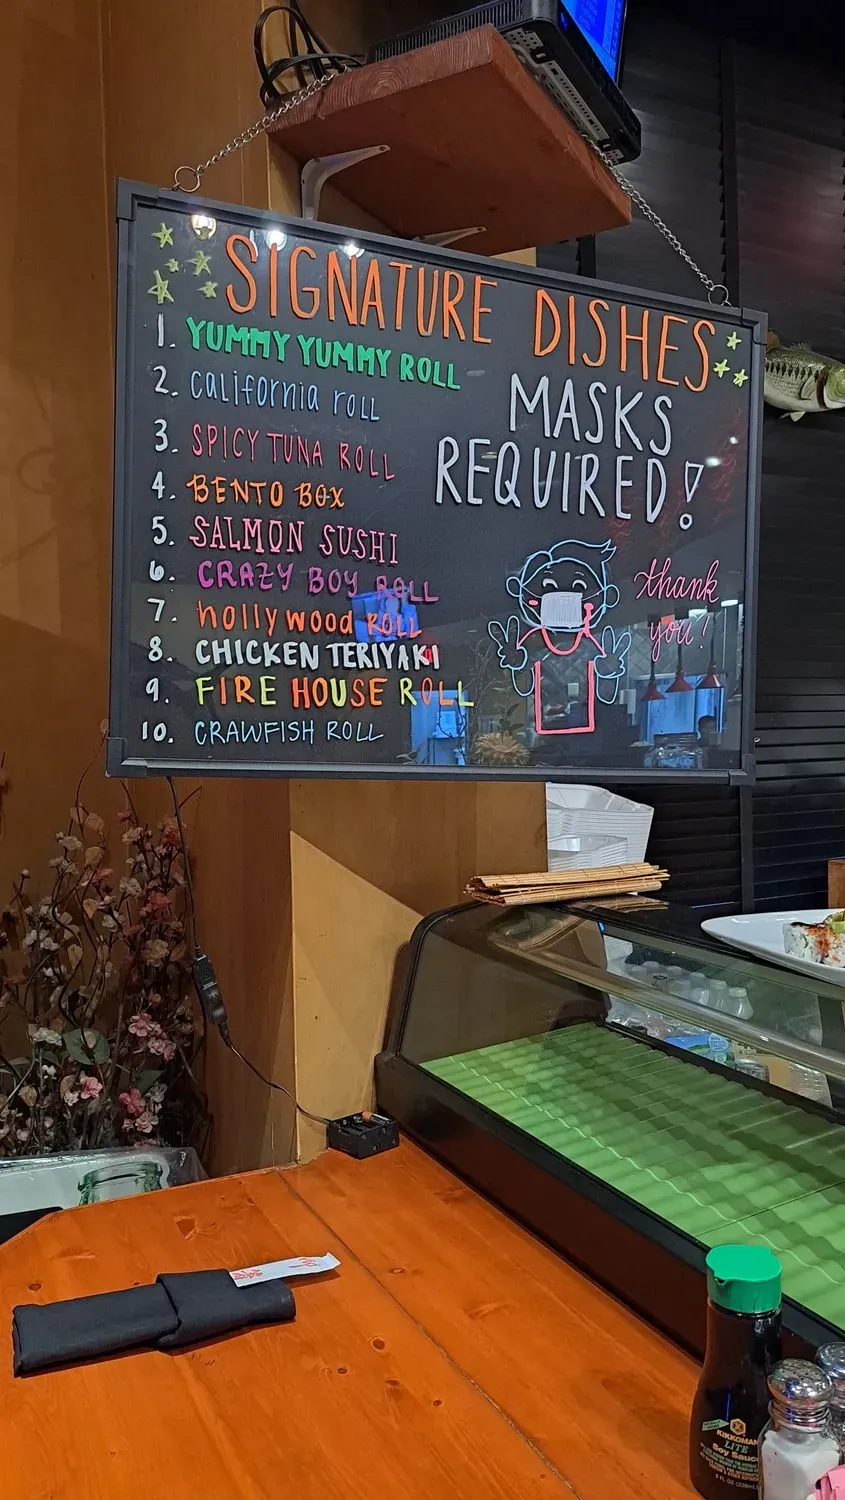 SIGNATURE DISHES
1. YUMMY YUMMY ROLL
2. california roll
3. SPICY TUNA ROLL
4. BENTO BOX
5. SALMON SUSHI
6. CRAZY BOY ROLL
7. hollywood ROLL
8. CHICKEN TERIYAKI
9. FIRE HOUSE ROLL
10. CRAWFISH ROLL
MASKS
REQUIRED!
thank
you!
KIKKOMAN
LITE
Soy Sauce